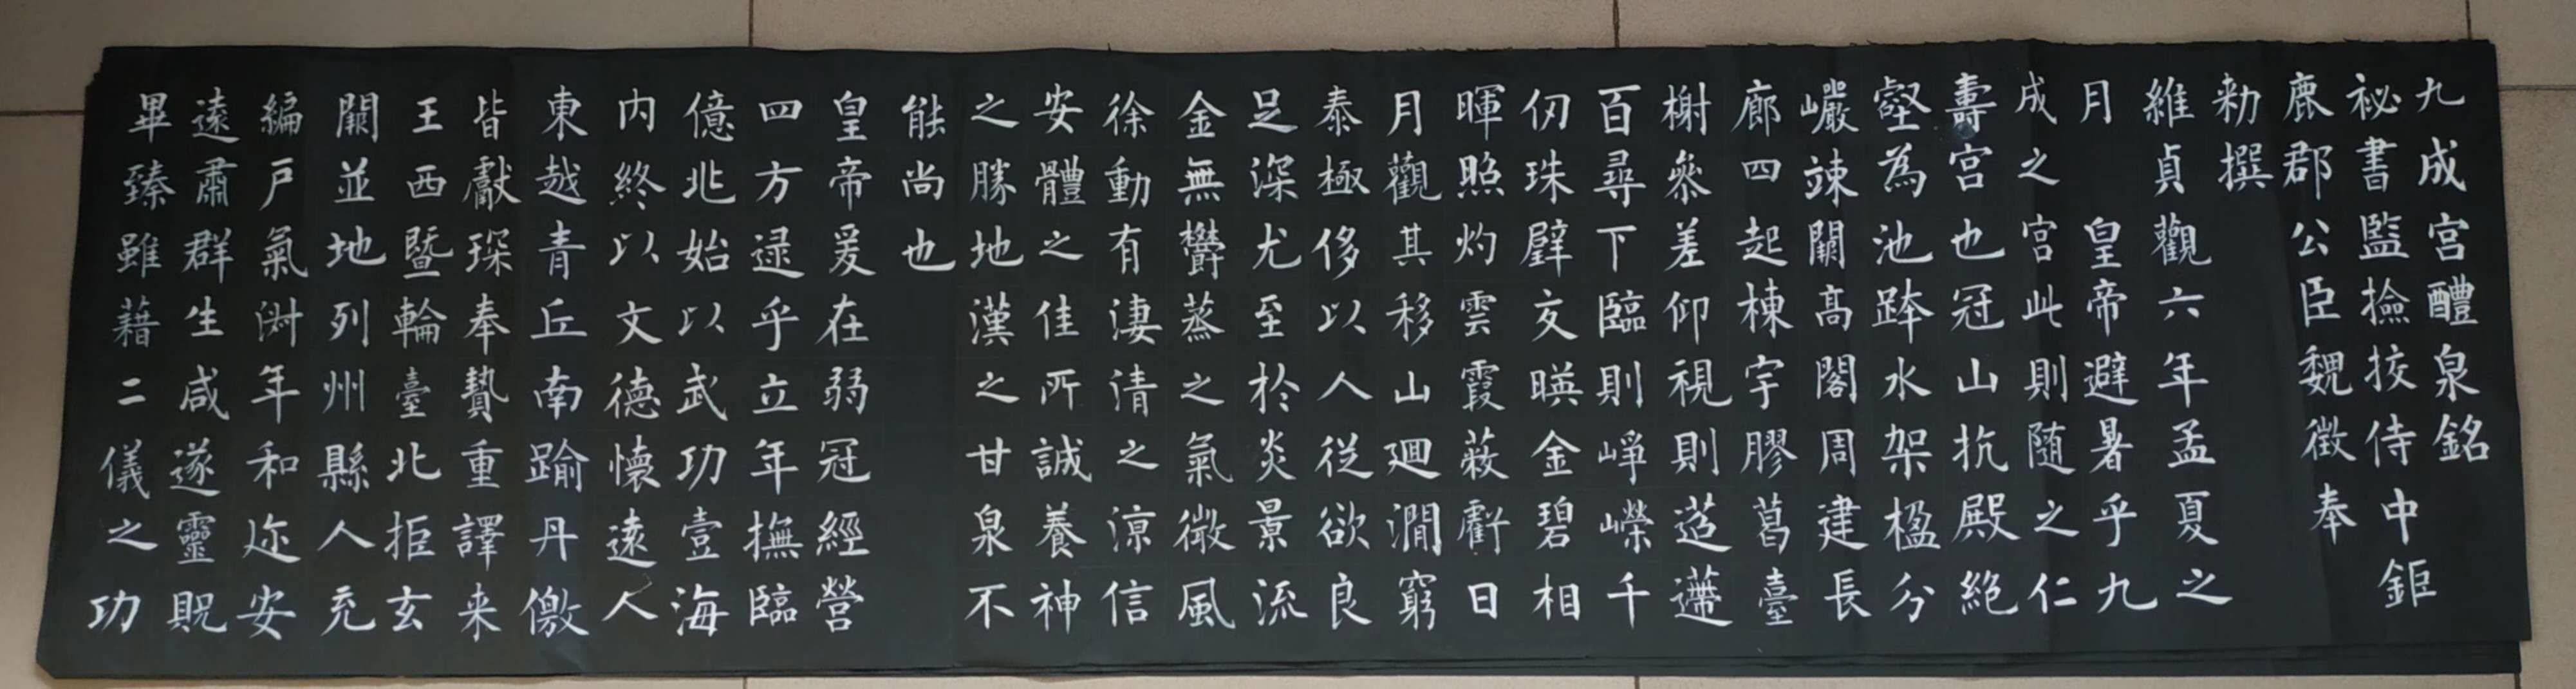 九成宮醴泉銘
祕書監撿挍侍中鉅
鹿郡公臣魏徵奉
勑撰
維貞觀六年孟夏之
月皇帝避暑乎九
成之宮此則随之仁
壽宮也冠山抗殿絕
壑為池跨水架楹分
巖竦闕高閣周建長
廊四起棟宇膠葛臺
榭參差仰視則迢遰
百尋下臨則崢嶸千
仞珠璧交暎金碧相
暉照灼雲霞蔽虧日
月觀其移山廻澗窮
泰極侈以人從欲良
足深尤至於炎景流
金無欝蒸之氣微風
徐動有淒清之涼信
安體之佳所誠養神
之勝地漢之甘泉不
能尚也
皇帝爰在弱冠經營
四方逯乎立年撫臨
億兆始以武功壹海
内終以文德懷遠人
東越青丘南踰丹儌
皆獻琛奉贄重譯来
王西暨輪臺北拒玄
闕並地列州縣人充
編戶氣淑年和迩安
遠肅群生咸遂靈貺
畢臻雖藉二儀之功